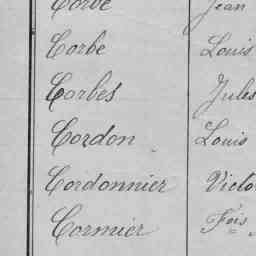 Corbe Jean
Corbe Louis
Corbes Jules
Cordon Louis
Cordonnier Victo
Cormier Fois